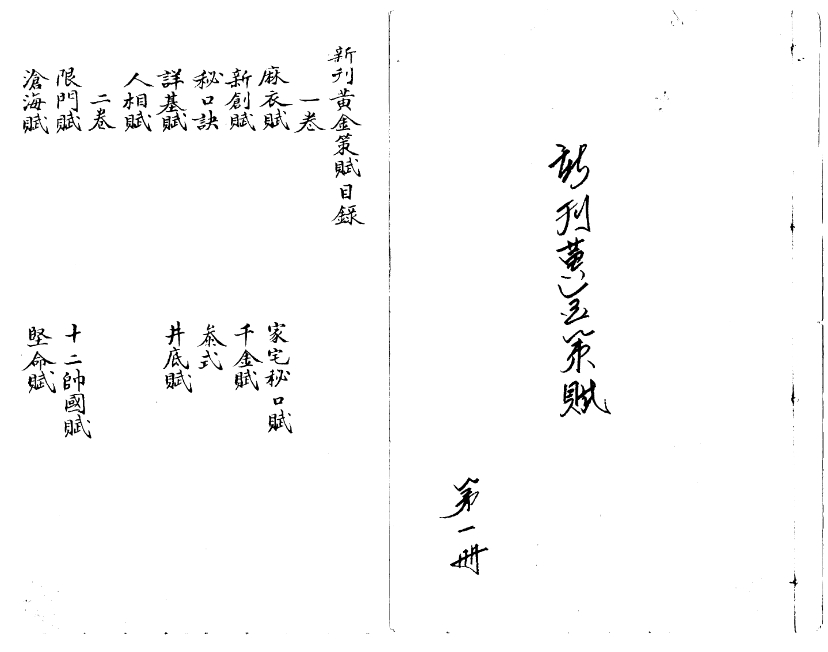 新刊黃金策賦
第一冊
新刊黃金策賦目錄
一卷
麻衣賦
家宅秘口賦
新創賦
千金賦
秘口訣
泰式
詳基賦
井底賦
人相賦
二卷
限門賦
十二帥國賦
滄海賦
堅命賦